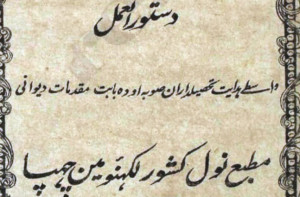 دستور العمل
واسطے ہدایت تحصیلداران صوبہ اودہ بابت مقدمات دیوانی
مطبع نول کشور لکھنؤ مین چھپا